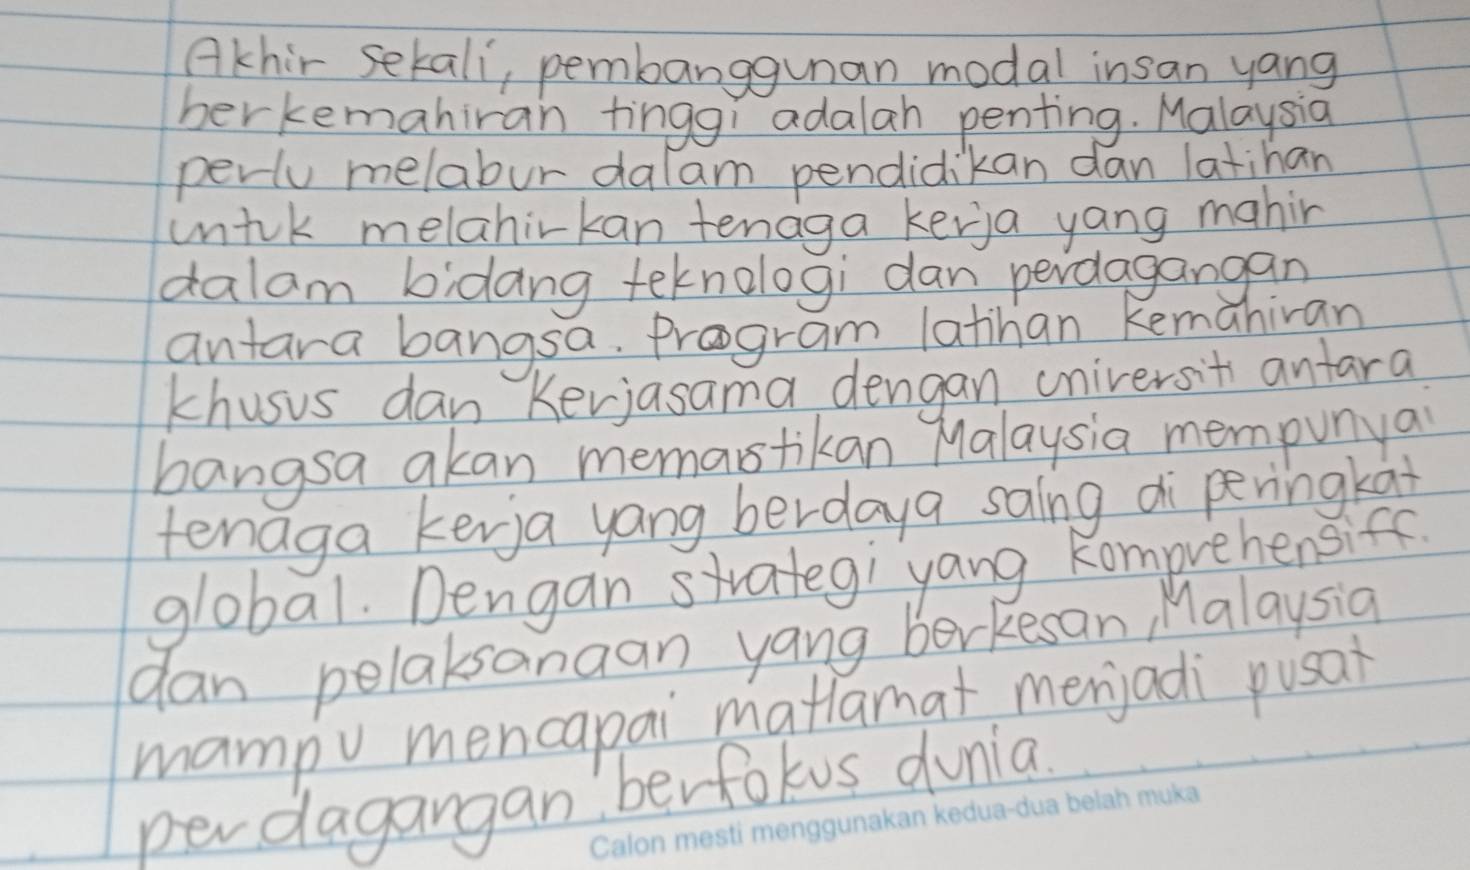 Akhir sekali, pembanggunan modal insan yang
berkemahiran tinggi adalah penting. Malaysia
perlu melabur dalam pendidikan dan latihan
untuk melahirkan tenaga kerja yang mahir
dalam bidang teknologi dan perdagangan
antara bangsa. Program latihan kemahiran
khusus dan kerjasama dengan universiti antara
bangsa akan memastikan Malaysia mempunyai
tenaga kerja yang berdaya saing di peringkat
global. Dengan strategi yang komprehensiff.
dan pelaksanaan yang berkesan, Malaysia
mampu mencapai matlamat menjadi pusat
perdagangan berfokus dunia.
Calon mesti menggunakan kedua-dua belah muka